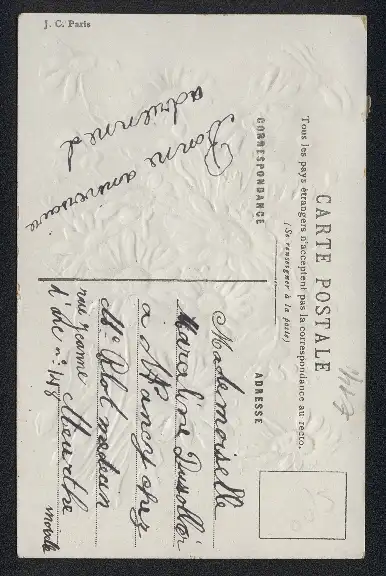 J. C. Paris
CARTE POSTALE
Tous les pays étrangers n'acceptent pas la correspondance au recto.
(Se renseigner à la poste)
CORRESPONDANCE
ADRESSE
Bonne aniversaire
adrienne d
Mademoiselle
Marceline
à Nancy chez
Mr Blot medecin
rue jeanne
d'arc n: 148
Meurthe